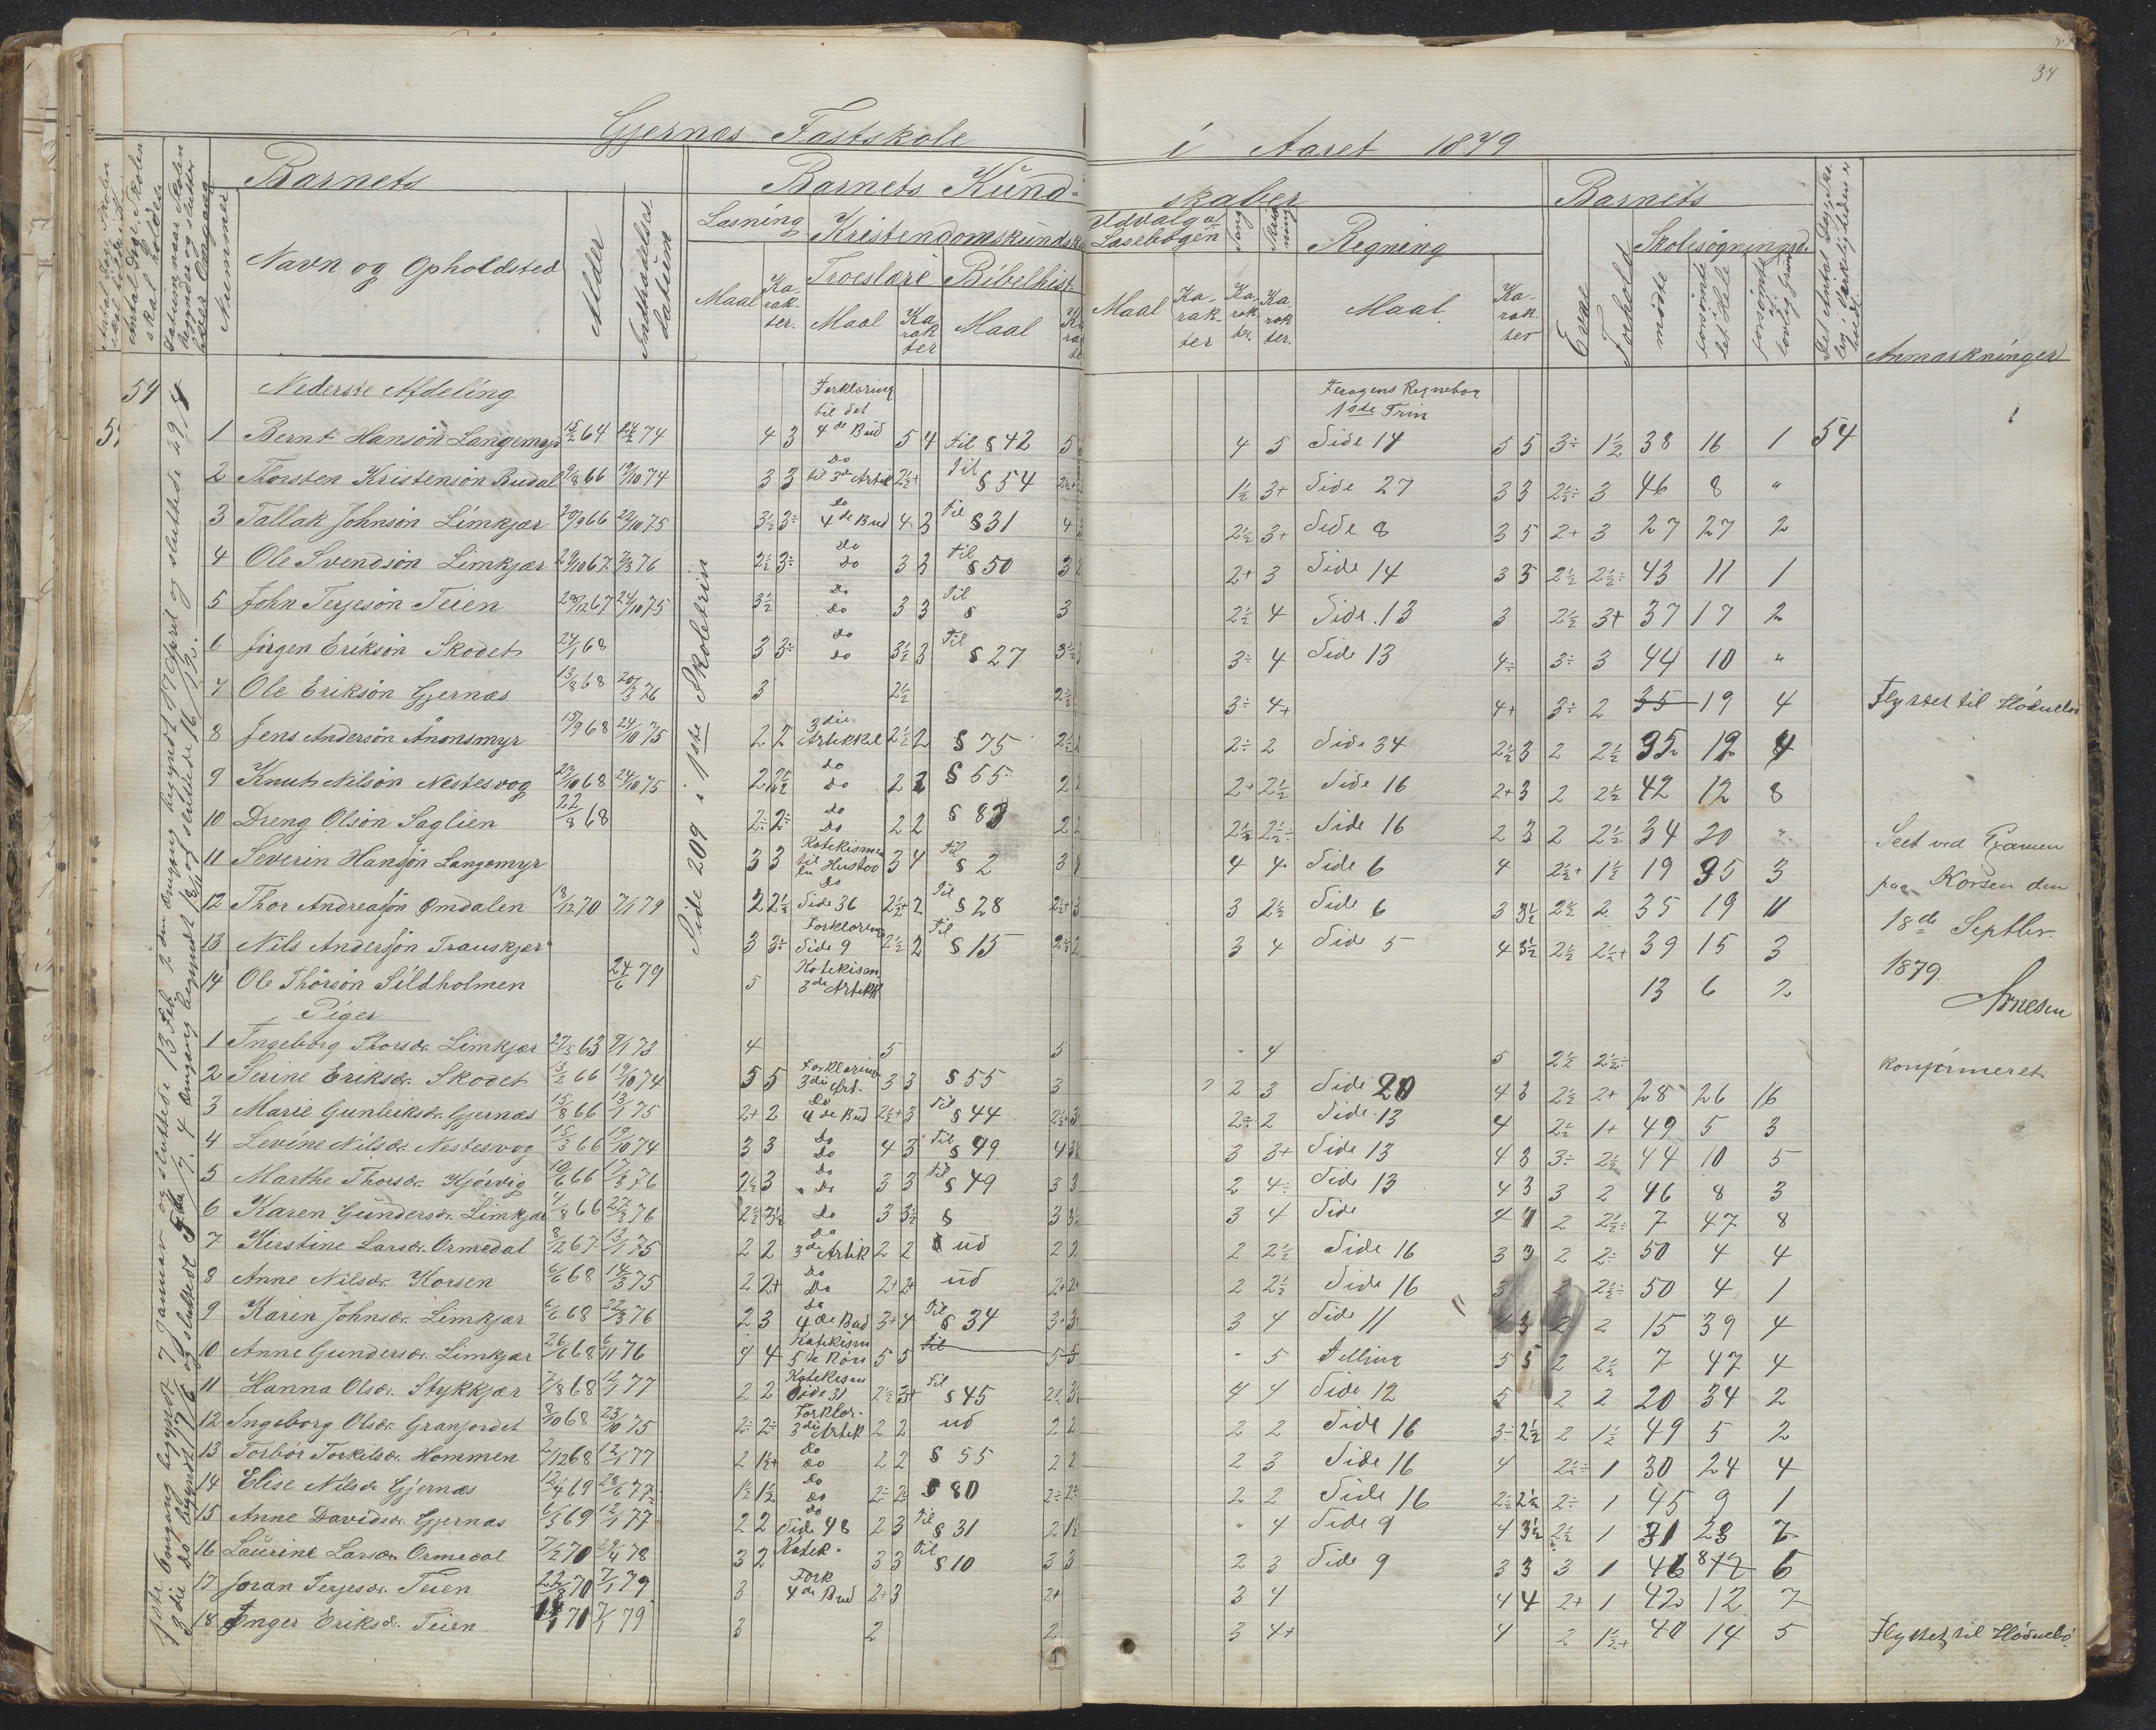 34
Gjernæs Fastskole i Aaret 1879
Barnets
Barnets Kund-
skaber
Barnets
Nummer
Navn og Opholdsted
Alder
Indtrædelses datum
Læsning
Kristendomskundsk
Troeslære
Bibelhist
Maal
Ka-rak-ter.
Maal
Ka rak ter
Maal
Udvalg af Læsebogen
Sang
Skriv ning
Regning
Maal
Ka-rak-ter
Ka-rak-ter.
Ka rak ter.
Maal
Ka-rak-ter
Evne
Forhold
Skolesøgningsda
mødte
forsømte det Hele
forsømte af lovlig Grund
Det Antal Dage Skolen i Virkeligheden er holdt
Anmærkninger
Antal Dage Skolen skal holdes
54
Nederste Afdeling
Forklaring til det
Feragens Regnebog
1ste Trin
54
Side 209 i 1ste Skoletrin
1 Bernt Hansøn Langemyr 15/2 64 24/2 74 4 3 4de Bud 5 4 til § 42 5 4 5 Side 14 5 5 3÷ 1½ 38 16 1
2 Thorsten Kristensøn Rudal 9/8 66 19/10 74 3 3 do til 3die Artik 2½+ Til § 54 1½ 3+ Side 27 3 3 2½÷ 3 46 8 "
3 Tallak Johnsøn Limkjær 20/9 66 22/10 75 3½ 3÷ do 4de Bud 4 3 til § 31 4 2½ 3+ Side 8 3 5 2+ 3 27 27 2
4 Ole Svendsøn Limkjær 29/10 67 7/3 76 2½ 3÷ do do 3 3 til § 50 3 2+ 3 Side 14 3 5 2½ 2½÷ 43 11 1
5 John Terjesøn Teien 28/12 67 24/10 75 3½ do do 3 3 Til § 3 2½ 4 Side 13 3 2½ 3+ 37 17 2
6 Jørgen Eriksøn Skodet 24/1 68 3 3÷ do do 3½ 3 Til § 27 3½ 3÷ 4 Side 13 4÷ 3÷ 3 44 10 "
7 Ole Eriksøn Gjernæs 13/8 68 20/3 76 3 2½ 2½ 3÷ 4+ 4+ 3÷ 2 35 19 4 Flyttet til Hødnebø
8 Jens Andersøn Ånonsmyr 15/9 68 24/10 75 2 2 3die Artikkel 2½ 2 § 75 2½ 2÷ 2 Side 34 2½ 3 2 2½ 35 19 4
9 Knut Nilsøn Nestesvog 23/10 68 24/10 75 2 2½ do do 2 2 § 55 2 2+ 2½ Side 16 2+ 3 2 2½ 42 12 8
10 Dreng Olsøn Saglien 22/8 68 2÷ 2÷ do do 2 2 § 83 2 2½ 2½÷ Side 16 2 3 2 2½ 34 20 "
11 Severin Hansøn Langemyr 3 3 Katekismen til en Hustav 3 4 til § 2 3 4 4 Side 6 4 2½+ 1½ 19 35 3
12 Thor Andreasøn Omdalen 18/12 70 7/1 79 2 2½ do Side 36 2½+ 2 Til § 28 2½+ 3 2½ Side 6 3 3½ 2½ 2 35 19 11
13 Nils Andersøn Trauskjær 3 3÷ Forklaring Side 9 2½ 2 Til § 15 2½ 3 4 Side 5 4 3½ 2½ 2½+ 39 15 3
14 Ole Thorsøn Sildholmen 24/6 79 5 Katekism 3die Artikk 13 6 2
Seet ved Examen
paa Korsen den
18de Septbr.
1879.
Arnesen
Piger
1 Ingeborg Thorsdr. Limkjær 27/5 63 9/1 73 4 5 5 " 4 5 2½ 2½÷ konfirmeret
2 Serine Eriksdr. Skodet 13/2 66 19/10 74 5 5 Forklaring 3die Art. 3 3 § 55 3 2 2 3 Side 20 4 3 2½ 2+ 28 26 16
3 Marie Gunleiksdr. Gjernæs 15/8 66 13/1 75 2+ 2 Do 4de Bud 2½+ 3 til § 44 2½+ 2÷ 2 Side 13 4 2½ 1+ 49 5 3
4 Levine Nilsdr. Nestesvog 15/3 66 19/10 74 3 3 Do Do 4 3 Til § 49 4 3 3+ Side 13 4 3 3÷ 2½ 44 10 5
5 Marthe Thorsdr. Kjørvig 10/6 66 17/3 76 2½ 3 Do Do 3 3 til § 49 3 3 2 4÷ Side 13 4 3 3 2 46 8 3
6 Karen Gundersdr. Limkjær 4/8 66 27/3 76 2½ 3½ Do 3 3½ § 3 3½ 3 4 Side 4 4 2 2½÷ 7 47 8
7 Kirstine Larsdr. Ormedal 8/12 67 13/1 75 2 2 Do 3die Artik 2 2 ud 2 2 2 2½ Side 16 3 3 2 2÷ 50 4 4
8 Anne Nilsdr. Korsen 6/6 68 14/3 75 2 2+ Do Do 2+ 2+ ud 2+ 2+ 2 2½ Side 16 3 2 2½÷ 50 4 1
9 Karen Johnsdr. Limkjær 6/6 68 22/3 76 2 3 do 4de Bud 3+ 4 Til § 34 3+ 3 3 4 Side 11 2 15 39 4
10 Anne Gundersdr. Limkjær 26/6 68 6/11 76 4 4 Katekism 5te Bøn 5 5 til 5 5 " 5 Telling 5 5 2 2½ 7 47 4
11 Hanna Olsdr. Stykkjær 7/8 68 12/1 77 2 2 Katekism Side 31 2½ 3+ til § 45 2½ 3 4 4 Side 12 5 2 2 20 34 2
12 Ingeborg Olsdr. Granjordet 8/10 68 23/10 75 2÷ 2÷ Forklar. 3die Artik 2 2 ud 2 2 2 2 Side 16 3÷ 2½ 2 1½ 49 5 2
13 Torbør Torkilsdr. Hommen 2/12 68 12/1 77 2 1½+ do do 2 2 § 55 2 2 2 3 Side 16 4 2½÷ 1 30 24 4
14 Elise Nilsdr. Gjernæs 12/4 69 28/6 77 1½ 1½ do do 2÷ 2÷ § 80 2÷ 2÷ 2 2 Side 16 2½ 2½ 2÷ 1 45 9 1
15 Anne Davidsdr. Gjernæs 6/5 69 12/1 77 2 2 do Side 48 2 3 Til § 31 2 1½ " 4 Side 9 4 3½ 2½ 1 31 23 7
16 Laurine Larsdr. Ormedal 7/2 70 29/4 78 3 2 Katek. 3 3 til § 10 3 3 2 3 Side 9 3 3 3 1 46 8 6
17 Joran Terjesdr. Teien 22/3 70 7/1 79 3 Fork 4de Bud 2+ 3 2+ 3 4 4 4 2+ 1 42 12 7
18 Inger Eriksdr. Teien 70 7/1 79 3 2 2 3 4+ 4 2 1½+ 40 14 5 Flyttet til Hødnebø
1ste Omgang begyndt 7 Januar og sluttede 13 Feb. 2den Omgang begyndt 17 April og sluttede 29/4
3die do begyndt 17/6 og sluttede 5te/7. 4 Omgang begyndt 18/11 og sluttede 16/12.